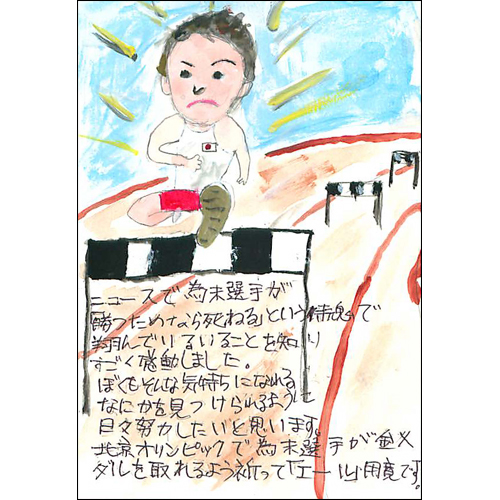 ニュースで為末選手が
勝つためなら死ねる」という特魂で
翔んでいるいることを知り
すごく感動しました。
ぼくもそんな気持ちになれる
なにかを見つけられるように
日々努力したいと思います。
北京オリンピックで為末選手が金メ
ダルを取れるよう祈って「エール」用意です。